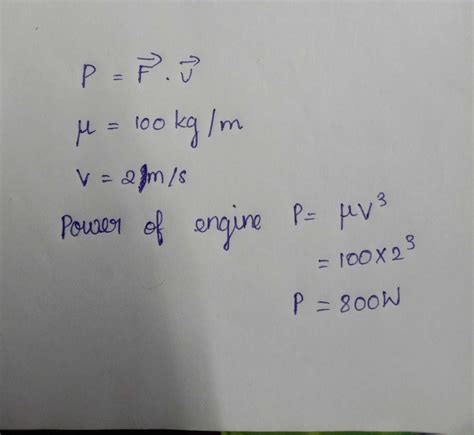 P = F⃗ . v⃗
μ = 100 kg/m
V = 2 m/s
Power of engine P = μV³
= 100×2³
P = 800W